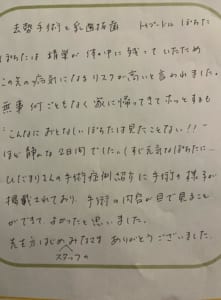 去勢手術と乳歯抜歯 トイプードル ぽちた
ぽちたは 精巣が 体の中に 残っていたため
この先の病気になるリスクが高いと言われました。
無事何ごともなく家に帰ってきてホッとするも
「こんなにおとなしいぽちたは見たことない!!」
ほど静かな2日間でした。(すぐ元気なぽちたに…
ひだまりさんの手術症例紹介に手術の様子が
掲載されており、手術の内容が目で見ること
ができて、よかったと思いました。
先生方はじめスタッフのみなさま ありがとうございました。